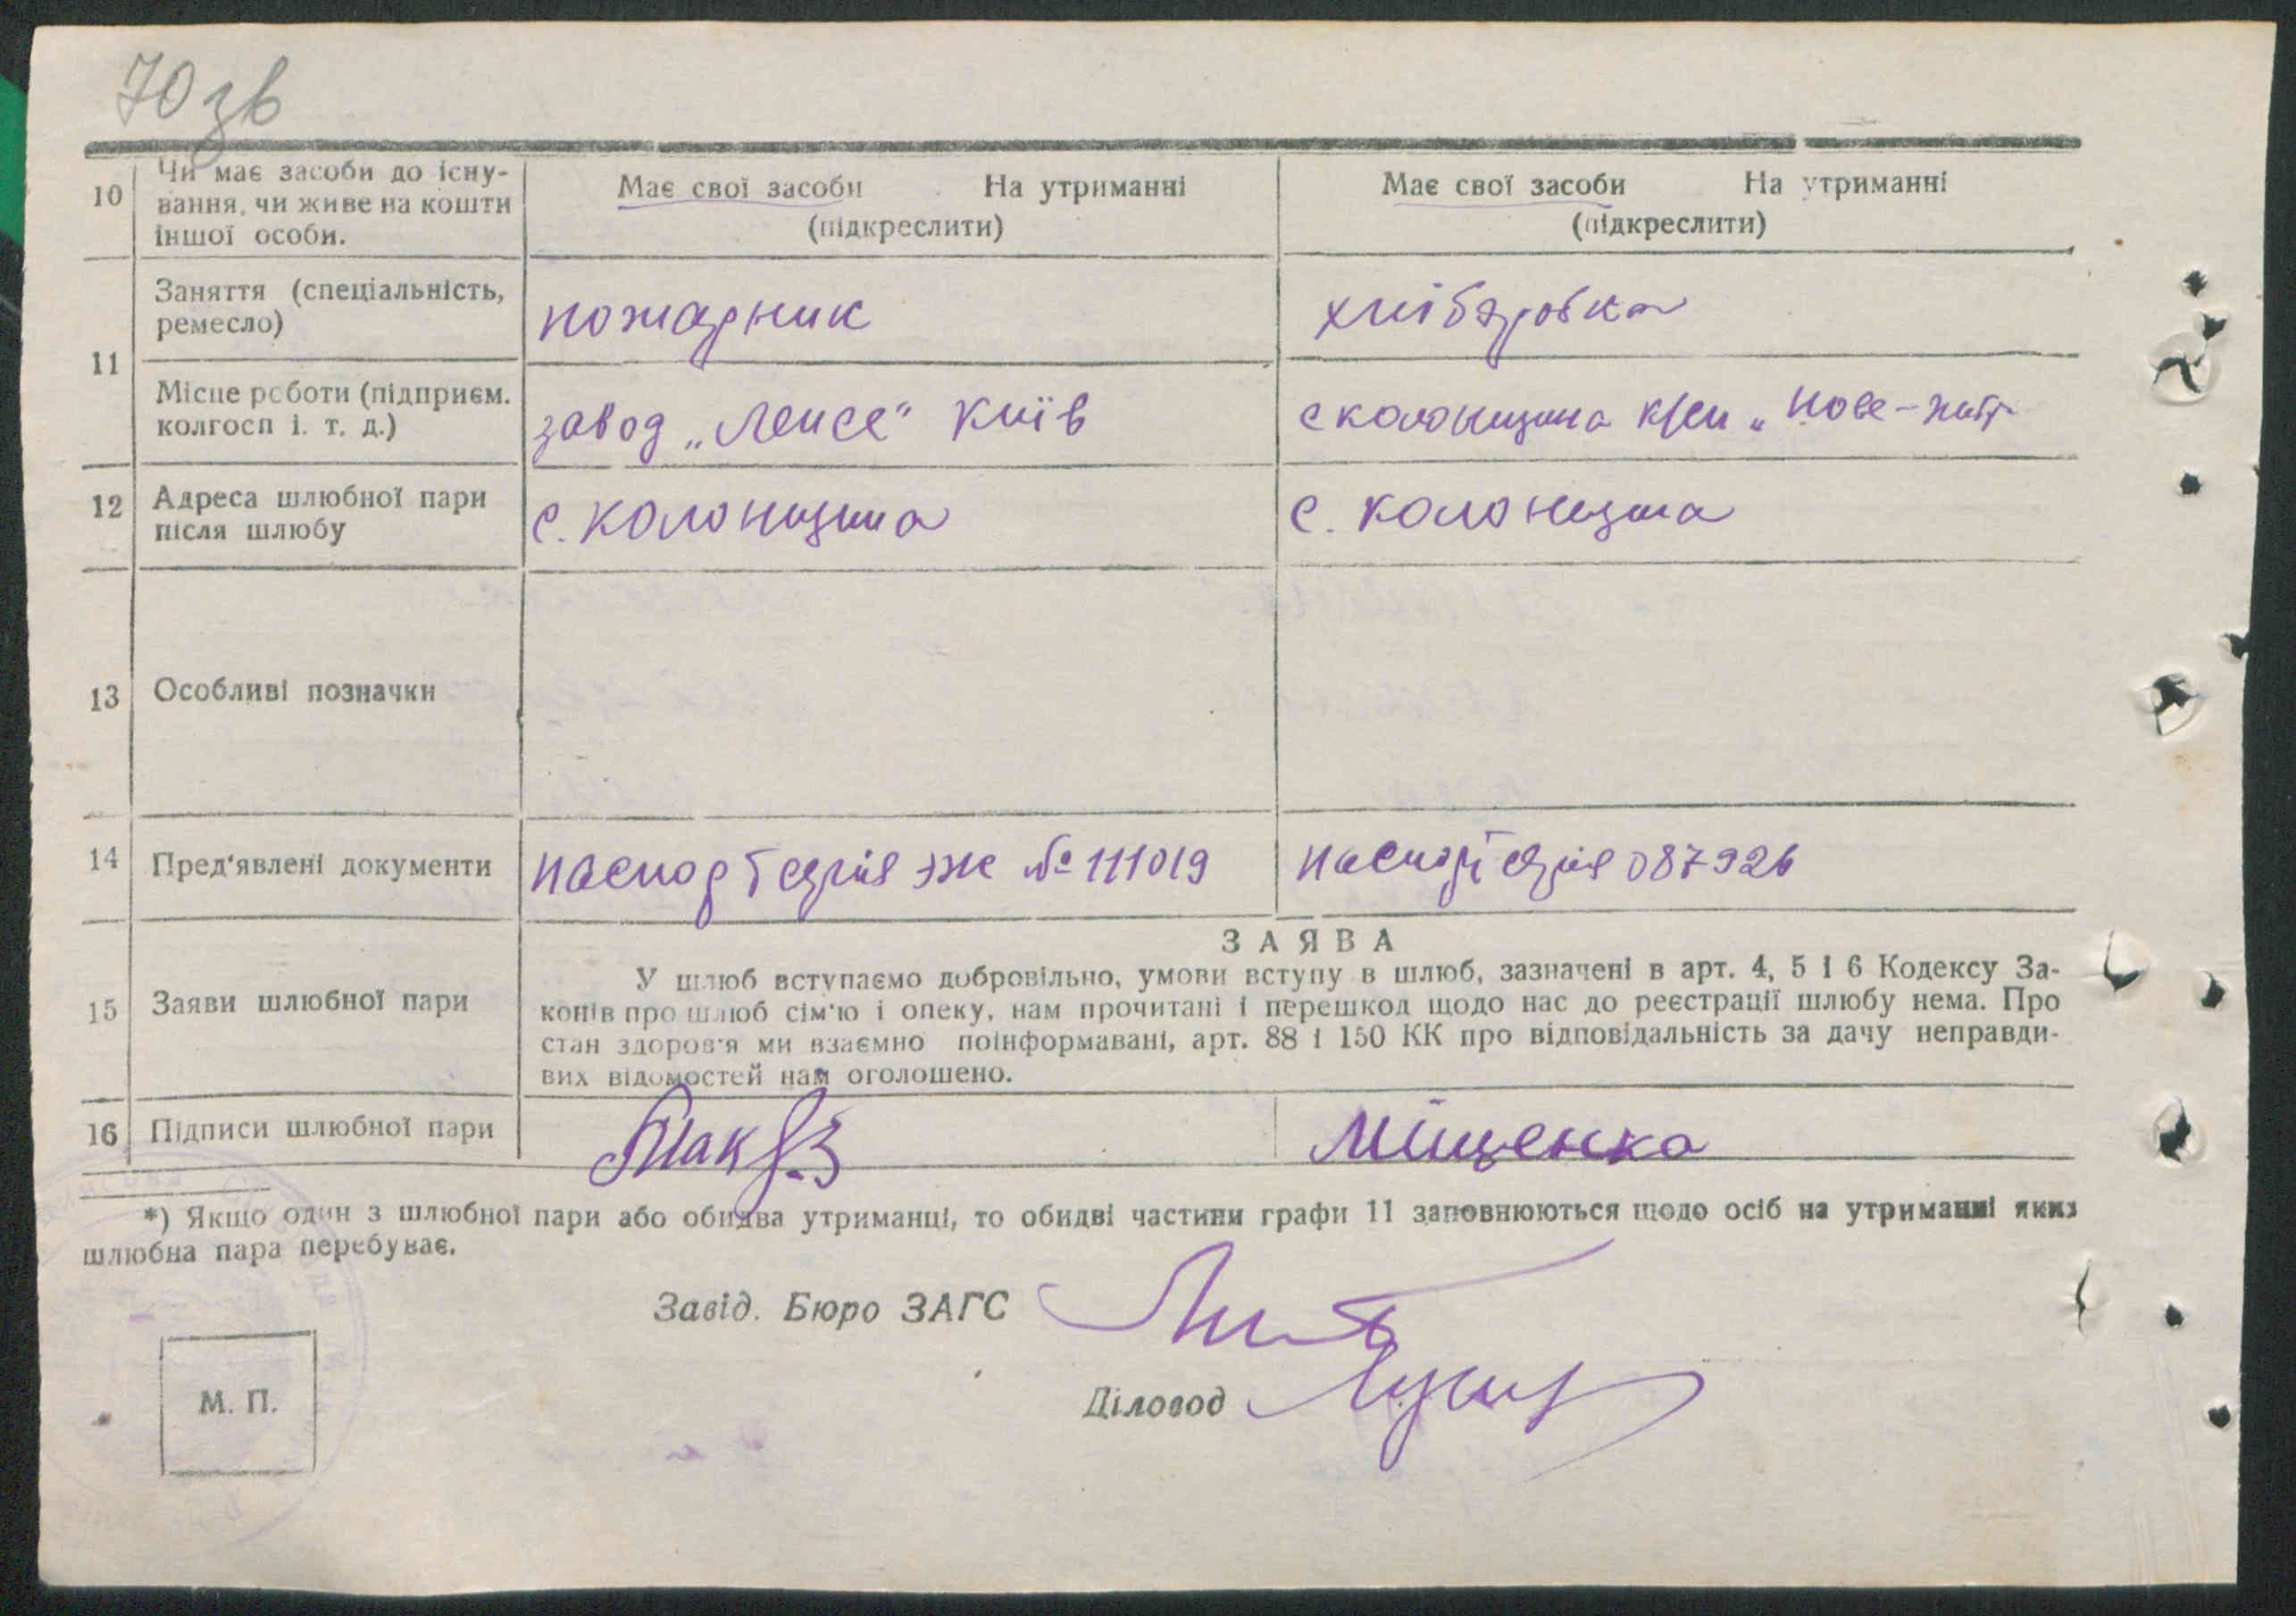 70 зв
10 Чи має засоби до існу-
вання, чи живе на кошти
іншої особи.
Має свої засоби На утриманні
(підкреслити)
Має свої засоби На утриманні
(підкреслити)
11 Заняття (спеціальність,
ремесло)
пожарник
хліборобка
Місце роботи (підприєм.
колгосп і. т. д.)
завод „Ленсе" Київ
с колонщина „Нове-жит
12 Адреса шлюбної пари
після шлюбу
с. колонщина
с. колонщина
13 Особливі позначки
14 Пред'явлені документи
паспорт серія ЭЖ № 111019
паспорт серія 087926
15 Заяви шлюбної пари
ЗАЯВА
У шлюб вступаємо добровільно, умови вступу в шлюб, зазначені в арт. 4, 5 і 6 Кодексу За-
конів про шлюб сім'ю і опеку, нам прочитані і перешкод щодо нас до реєстрації шлюбу нема. Про
стан здоров'я ми взаємно поінформавані, арт. 88 і 150 КК про відповідальність за дачу неправди-
вих відомостей нам оголошено.
16 Підписи шлюбної пари
Міщенко
*) Якщо один з шлюбної пари або обидва утриманці, то обидві частини графи 11 заповнюються щодо осіб на утриманні яких
шлюбна пара перебуває.
Завід. Бюро ЗАГС
Діловод
М. П.